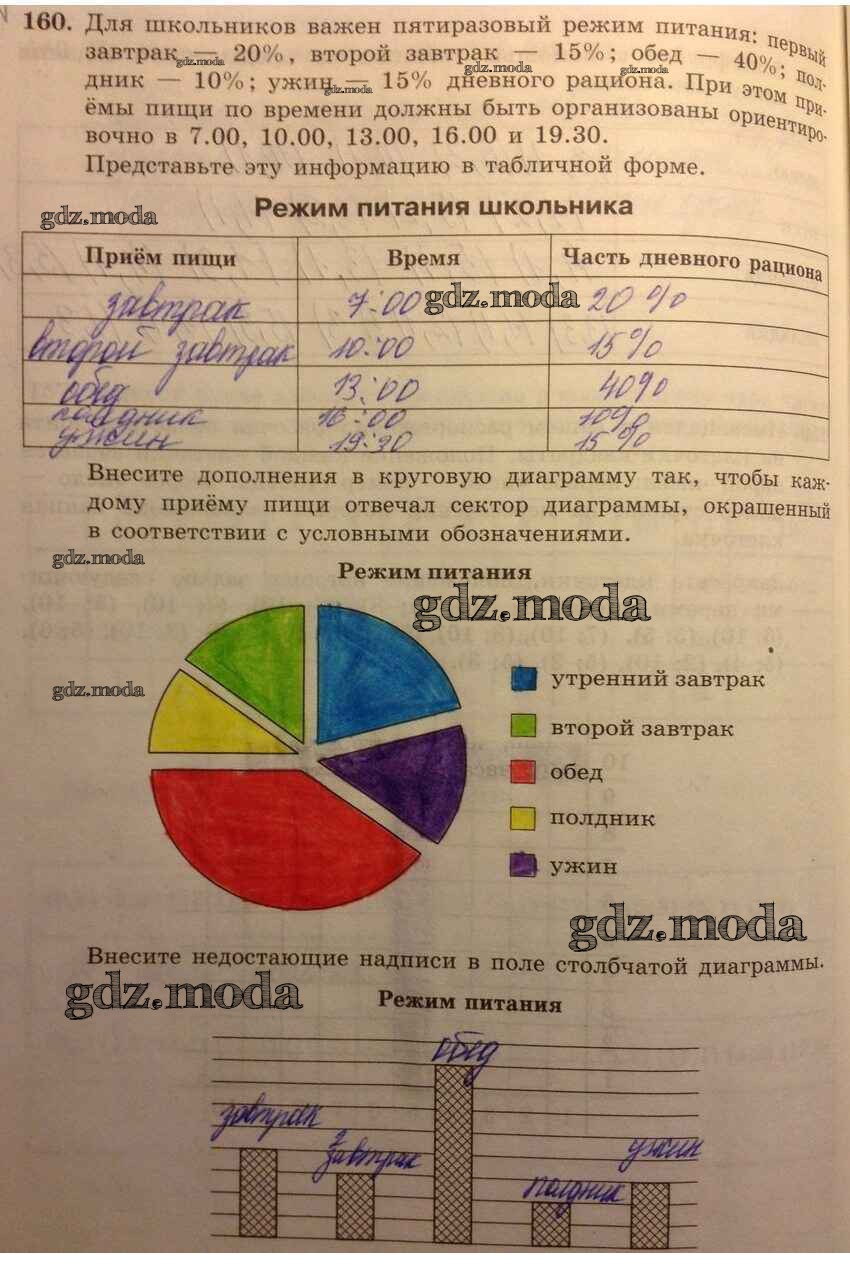 160. Для школьников важен пятиразовый режим питания: первый
завтрак — 20%, второй завтрак — 15%; обед — 40%; пол-
gdz.moda gdz.moda gdz.moda
дник — 10%; ужин — 15% дневного рациона. При этом при-
gdz.moda
ёмы пищи по времени должны быть организованы ориентиро-
вочно в 7.00, 10.00, 13.00, 16.00 и 19.30.
Представьте эту информацию в табличной форме.
gdz.moda
Режим питания школьника
Приём пищи Время Часть дневного рациона
завтрак 7:00 20%
gdz.moda
второй завтрак 10:00 15%
обед 13:00 40%
полдник 16:00 10%
ужин 19:30 15%
Внесите дополнения в круговую диаграмму так, чтобы каж-
дому приёму пищи отвечал сектор диаграммы, окрашенный
в соответствии с условными обозначениями.
gdz.moda
Режим питания
gdz.moda
утренний завтрак
gdz.moda
второй завтрак
обед
полдник
ужин
gdz.moda
Внесите недостающие надписи в поле столбчатой диаграммы.
gdz.moda
Режим питания
обед
завтрак
2 завтрак
ужин
полдник